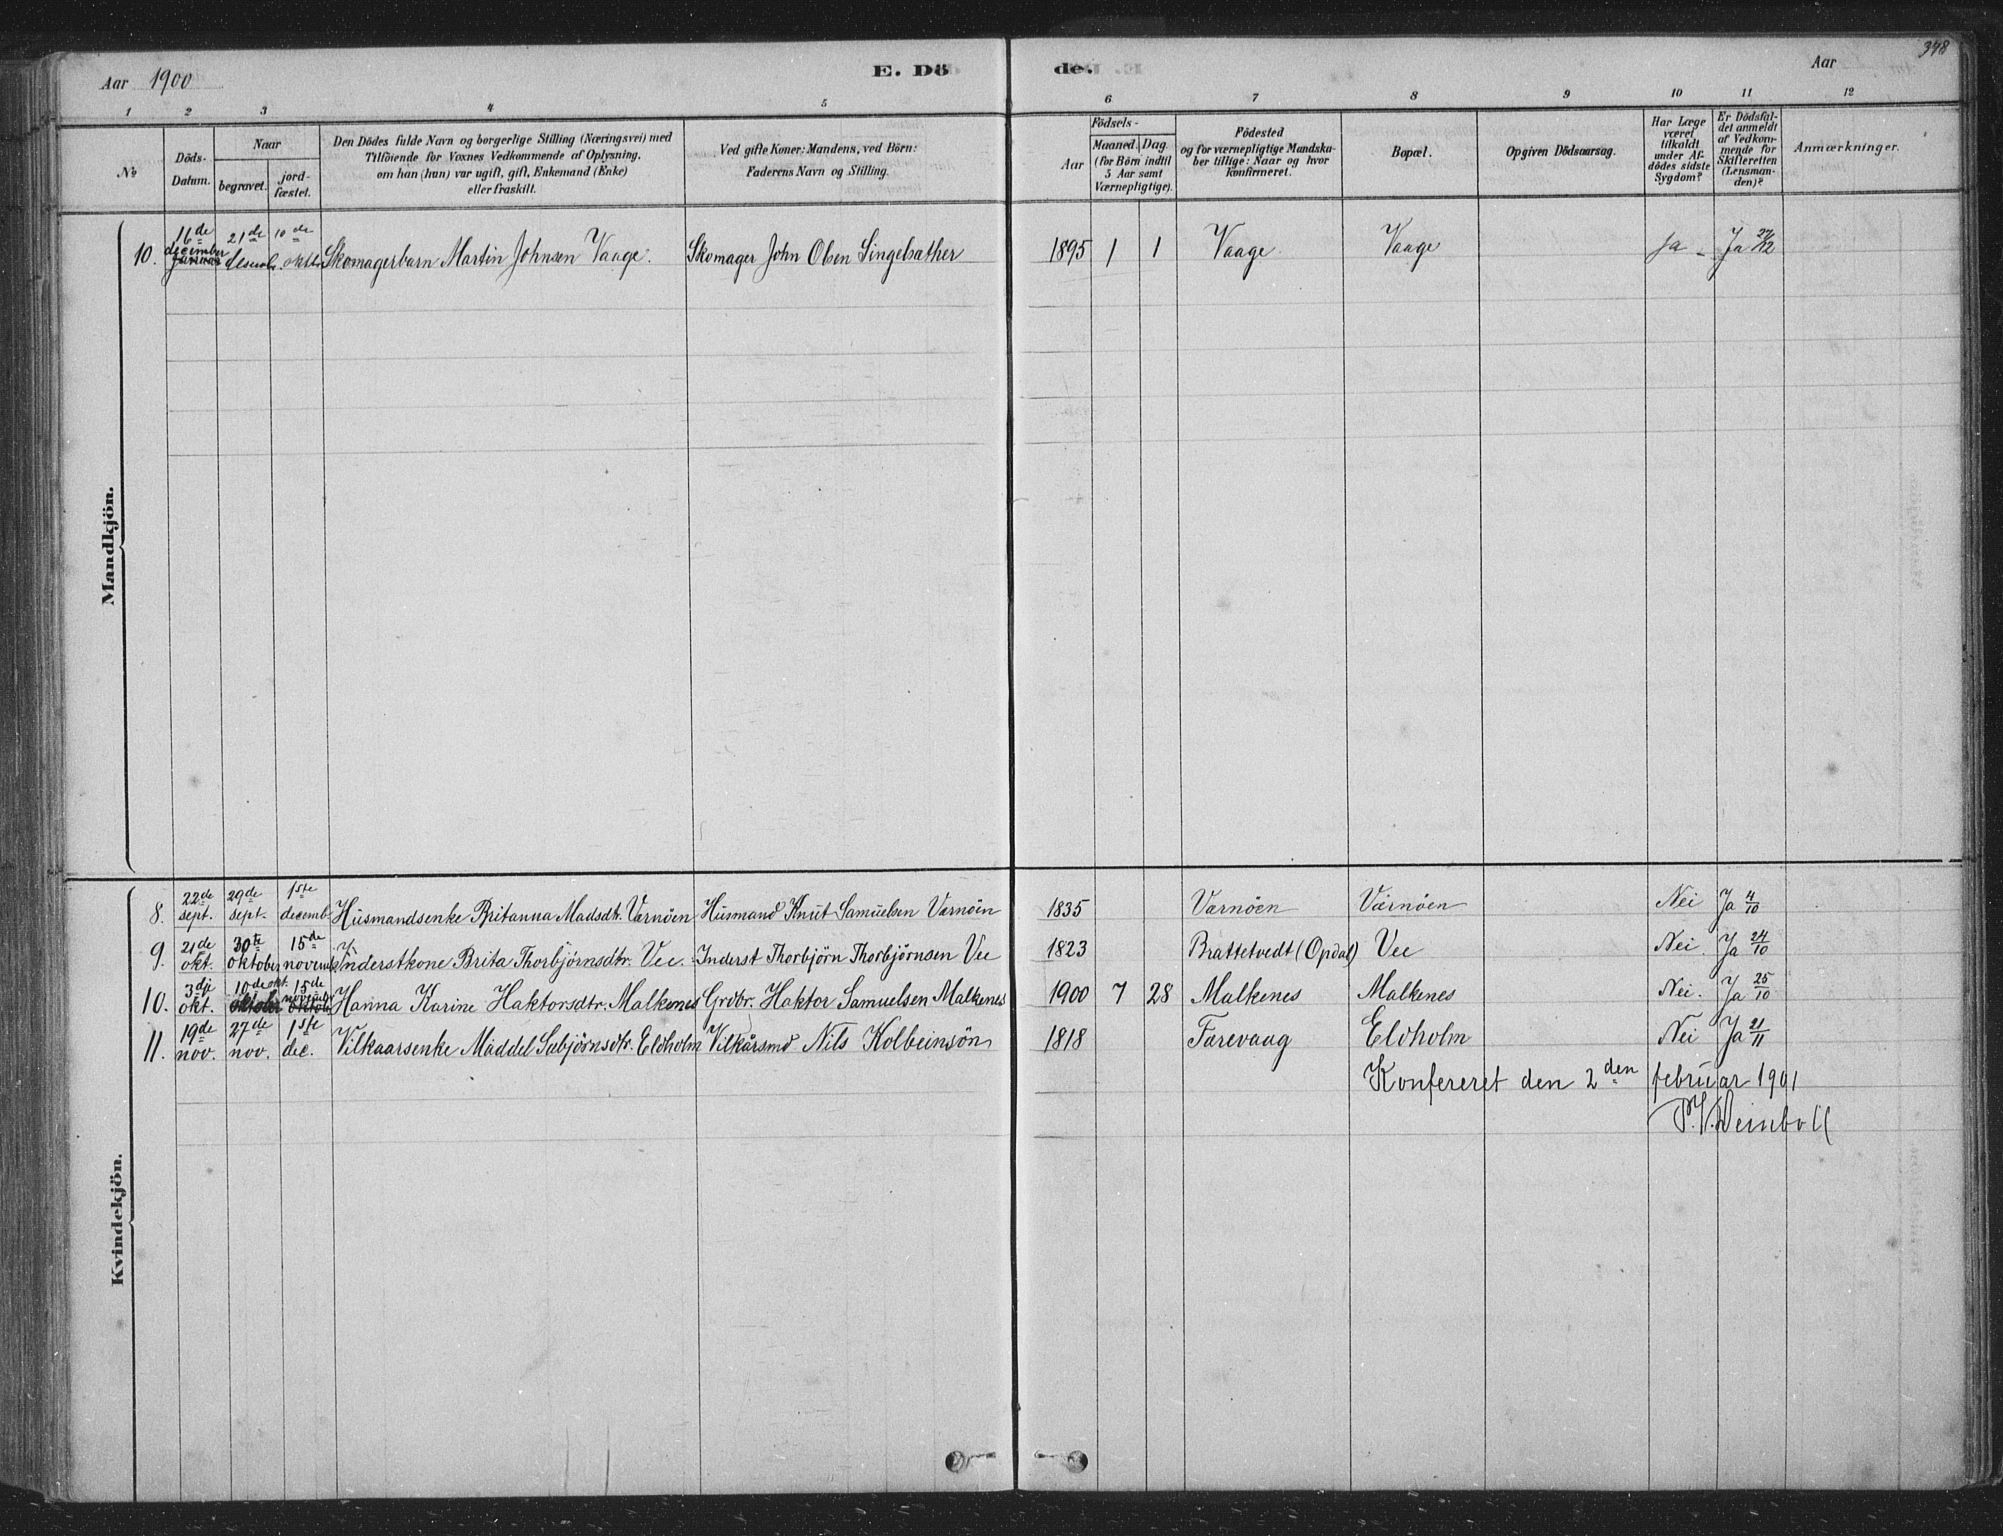 Aar 1900
E. Dö de.
Aar
348
1 2 3 4 5 6 7 8 9 10 11 12
No
Döds-Datum.
Naar
begravet.
jord-fæstet.
Den Dödes fulde Navn og borgerlige Stilling (Næringsvei) med
Tilföiende for Voxnes Vedkommende af Oplysning,
om han (hun) var ugift, gift, Enkemand (Enke)
eller fraskilt.
Ved gifte Koner: Mandens, ved Börn:
Faderens Navn og Stilling.
Födsels-
Aar
Maaned. Dag
(for Börn indtil
5 Aar samt
Værnepligtige).
Födested
og for værnepligtige Mandska-
ber tillige: Naar og hvor
konfirmeret.
Bopæl.
Opgiven Dödsaarsag.
Har Læge
været
tilkaldt
under Af-
dödes sidste
Sygdom?
Er Dödsfal-
det anmeldt
af Vedkom-
mende for
Skifteretten
(Lensman-
den)?
Anmærkninger.
Mandkjön.
10. 16de december 21de 10de Skomagerbarn Martin Johnsen Vaage. Skomager John Olsen Singelsather 1895 1 1 Vaage. Vaage Ja Ja 22/12
Kvindekjön.
8. 22de sept. 29de sept. 1ste decemb. Husmandsenke Britanna Madsdtr. Værnöen Husmand Knut Samuelsen Værnöen 1835 Værnöen Værnöen Nei Ja 4/10
9. 21de okt. 30te oktober 15de novemb. Inderstkone Brita Thorbjörnsdtr. Vee. Inderst Thorbjörn Thorbjörnsen Vee 1823 Brattetvedt (Opdal) Vee Nei. Ja 24/10
10. 3dje okt. 10de okt. 15de november Hanna Karine Haktorsdtr. Malkenes Grdbr. Haktor Samuelsen Malkenes 1900 7 28 Malkenes Malkenes Nei. Ja 25/10
11. 19de nov. 27de nov. 1ste dec. Vilkaarsenke Maddel Sabjörnsdtr. Eldholm Vilkårsmd Nils Kolbeinsön 1818 Farevaag Eldholm Nei Ja 21/11
Konfereret den 2den februar 1901